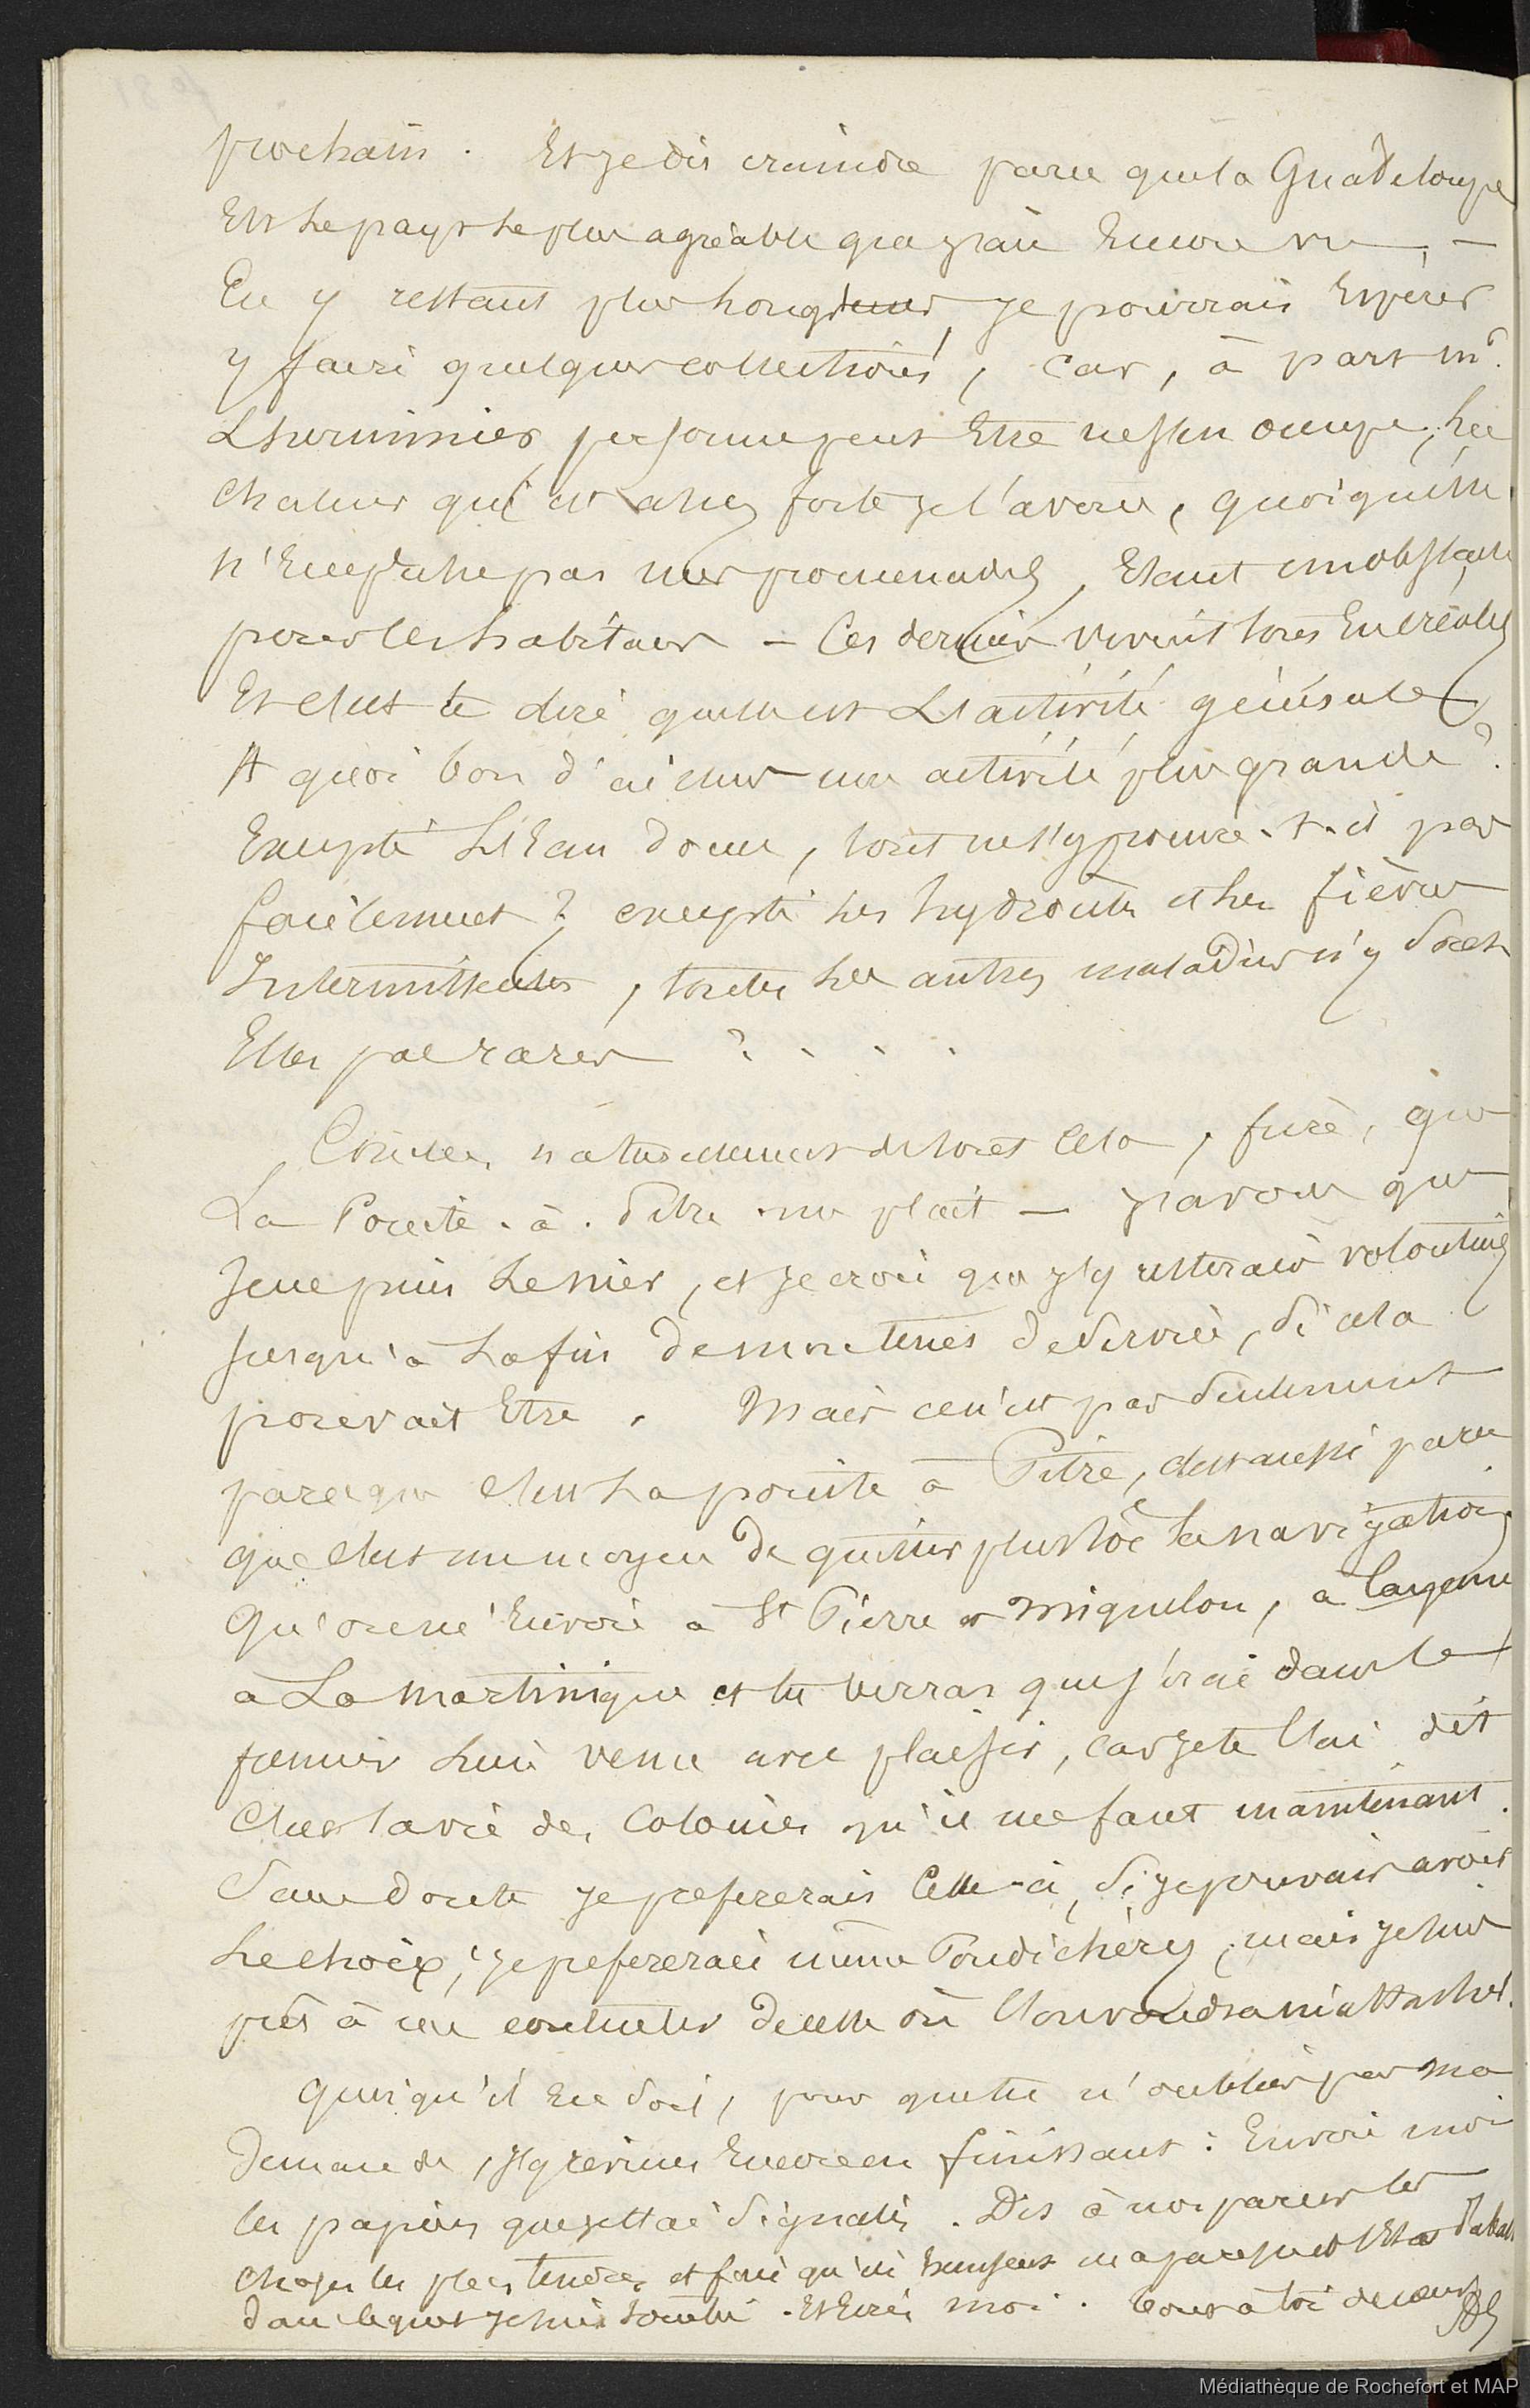 prochain. Et je dis craindre parce que la Guadeloupe
Est le pays le plus agréable que j'aie Encore vu, —
En y restant plus longtems, je pourrais Espérer
y faire quelques collections, car, à part Mr.
Lherminier, personne peut Etre ne s'en occupe, la
chaleur qui est assez forte je l'avoue, quoiqu'elle
n'Empêche pas mes promenades, Etant un obstacle
pour les habitans — Ces derniers vivent tous En créoles
Et c'est te dire quelle est L'activité générale
A quoi bon d'ailleurs une activité plus grande ?
Excepté L'Eau douce, tout ne s'y procure-t-il pas
facilement ? excepté les hydrocèles et les fièvres
Intermittentes, toutes les autres maladies n'y sont
Elles pas rares ? . . .
Conclue naturellement de tout cela, frère, que
La Pointe-à-Pitre me plait — j'avoue que
Je ne puis le nier, et je crois que j'y resterais volontiers
jusqu'à la fin de mon tems de service, si cela
pouvait Etre. Mais ce n'est pas seulement
parce que c'est La pointe à Pitre, c'est aussi parce
que c'est un moyen de quitter plustôt la navigation.
Qu'on me Envoie à St Pierre et Miquelon, à Cayenne
a La Martinique et tu verras que j'irai dans le
premier lieu venu avec plaisir, car je te l'ai dit
C'est la vie des Colonies qu'il me faut maintenant.
Sans doute je prefererais Celle-ci, si je pouvais avoir
Le choix, je prefererais même Pondichéry, mais je suis
prêt à me contenter de celle où l'on voudra m'attacher.
Quoiqu'il En soit, pour que tu n'oublies pas ma
demande, j'y reviens Encore en finissant : Envoie moi
les papiers que je t'ai signalés. Dis à nos parens les
choses les plus tendres et fais qu'ils Excusent ma paresse et l'Etat
dans lequel je suis tombé. Et Ecris moi. Tout à toi de cœur